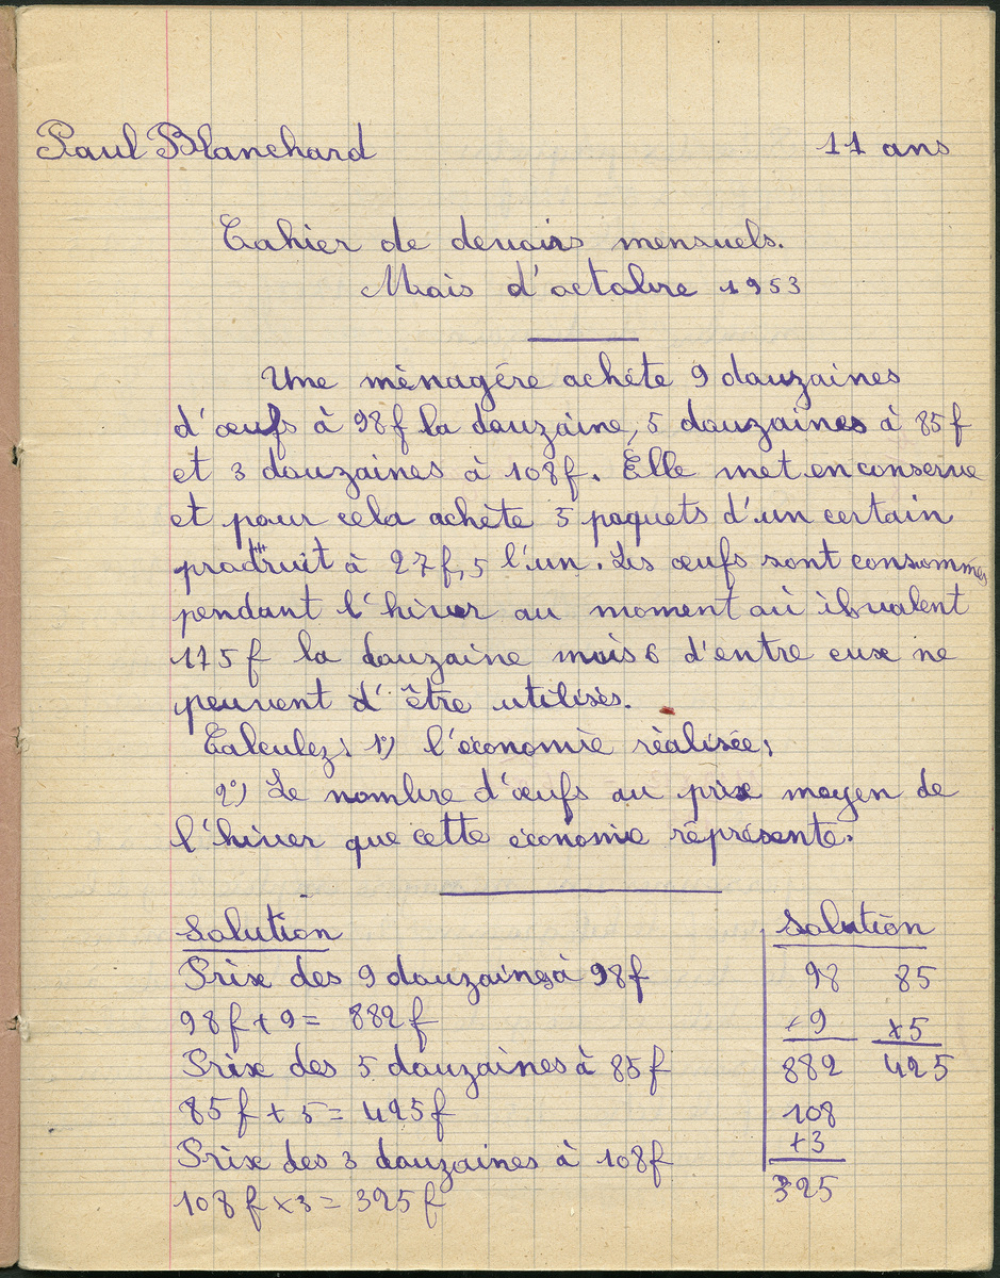 Paul Blanchard 11 ans
Cahier de devoirs mensuels.
Mois d'octobre 1953
Une ménagère achète 9 douzaines
d'œufs à 98f la douzaine, 5 douzaines à 85f
et 3 douzaines à 108f. Elle met en conserve
et pour cela achète 5 paquets d'un certain
produit à 27f,5 l'un. Les œufs sont consommés
pendant l'hiver au moment où ils valent
175f la douzaine mais 6 d'entre eux ne
peuvent d'être utilisés.
Calculez: 1°) l'économie réalisée;
2°) Le nombre d'œufs au prix moyen de
l'hiver que cette économie représente.
Solution
Prix des 9 douzaines à 98f
98f + 9 = 882f
Prix des 5 douzaines à 85f
85f + 5 = 425f
Prix des 3 douzaines à 108f
108f x 3 = 325f
Solution
98 85
+9 x5
882 425
108
+3
325